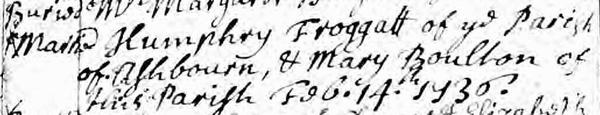 Buried Mrs Margaret
Marrd Humphry Froggatt of ye Parish
of Ashbourn, & Mary Boulton of
this Parish Feb: 14th 1736.
Elizabeth